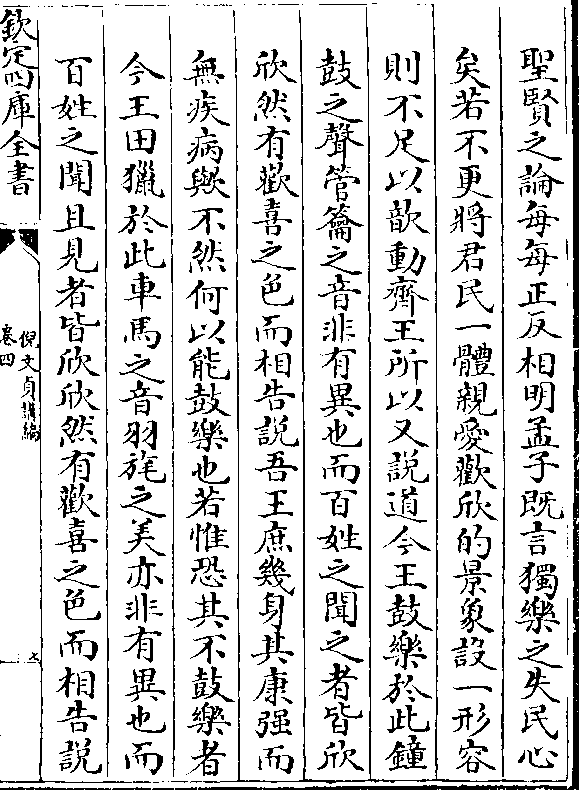 聖賢之論每每正反相明孟子既言獨樂之失民心
矣若不更將君民一體親愛歡欣的景象設一形容
則不足以歆動齊王所以又說道今王鼓樂於此鐘
鼓之聲管籥之音非有異也而百姓之聞之者皆欣
欣然有歡喜之色而相告說吾王庶幾身其康强而
無疾病與不然何以能鼓樂也若惟恐其不鼓樂者
今王田獵於此車馬之音羽旄之美亦非有異也而
百姓之聞且見者皆欣欣然有歡喜之色而相告說
欽定四庫全書
倪文貞講編
卷四
七